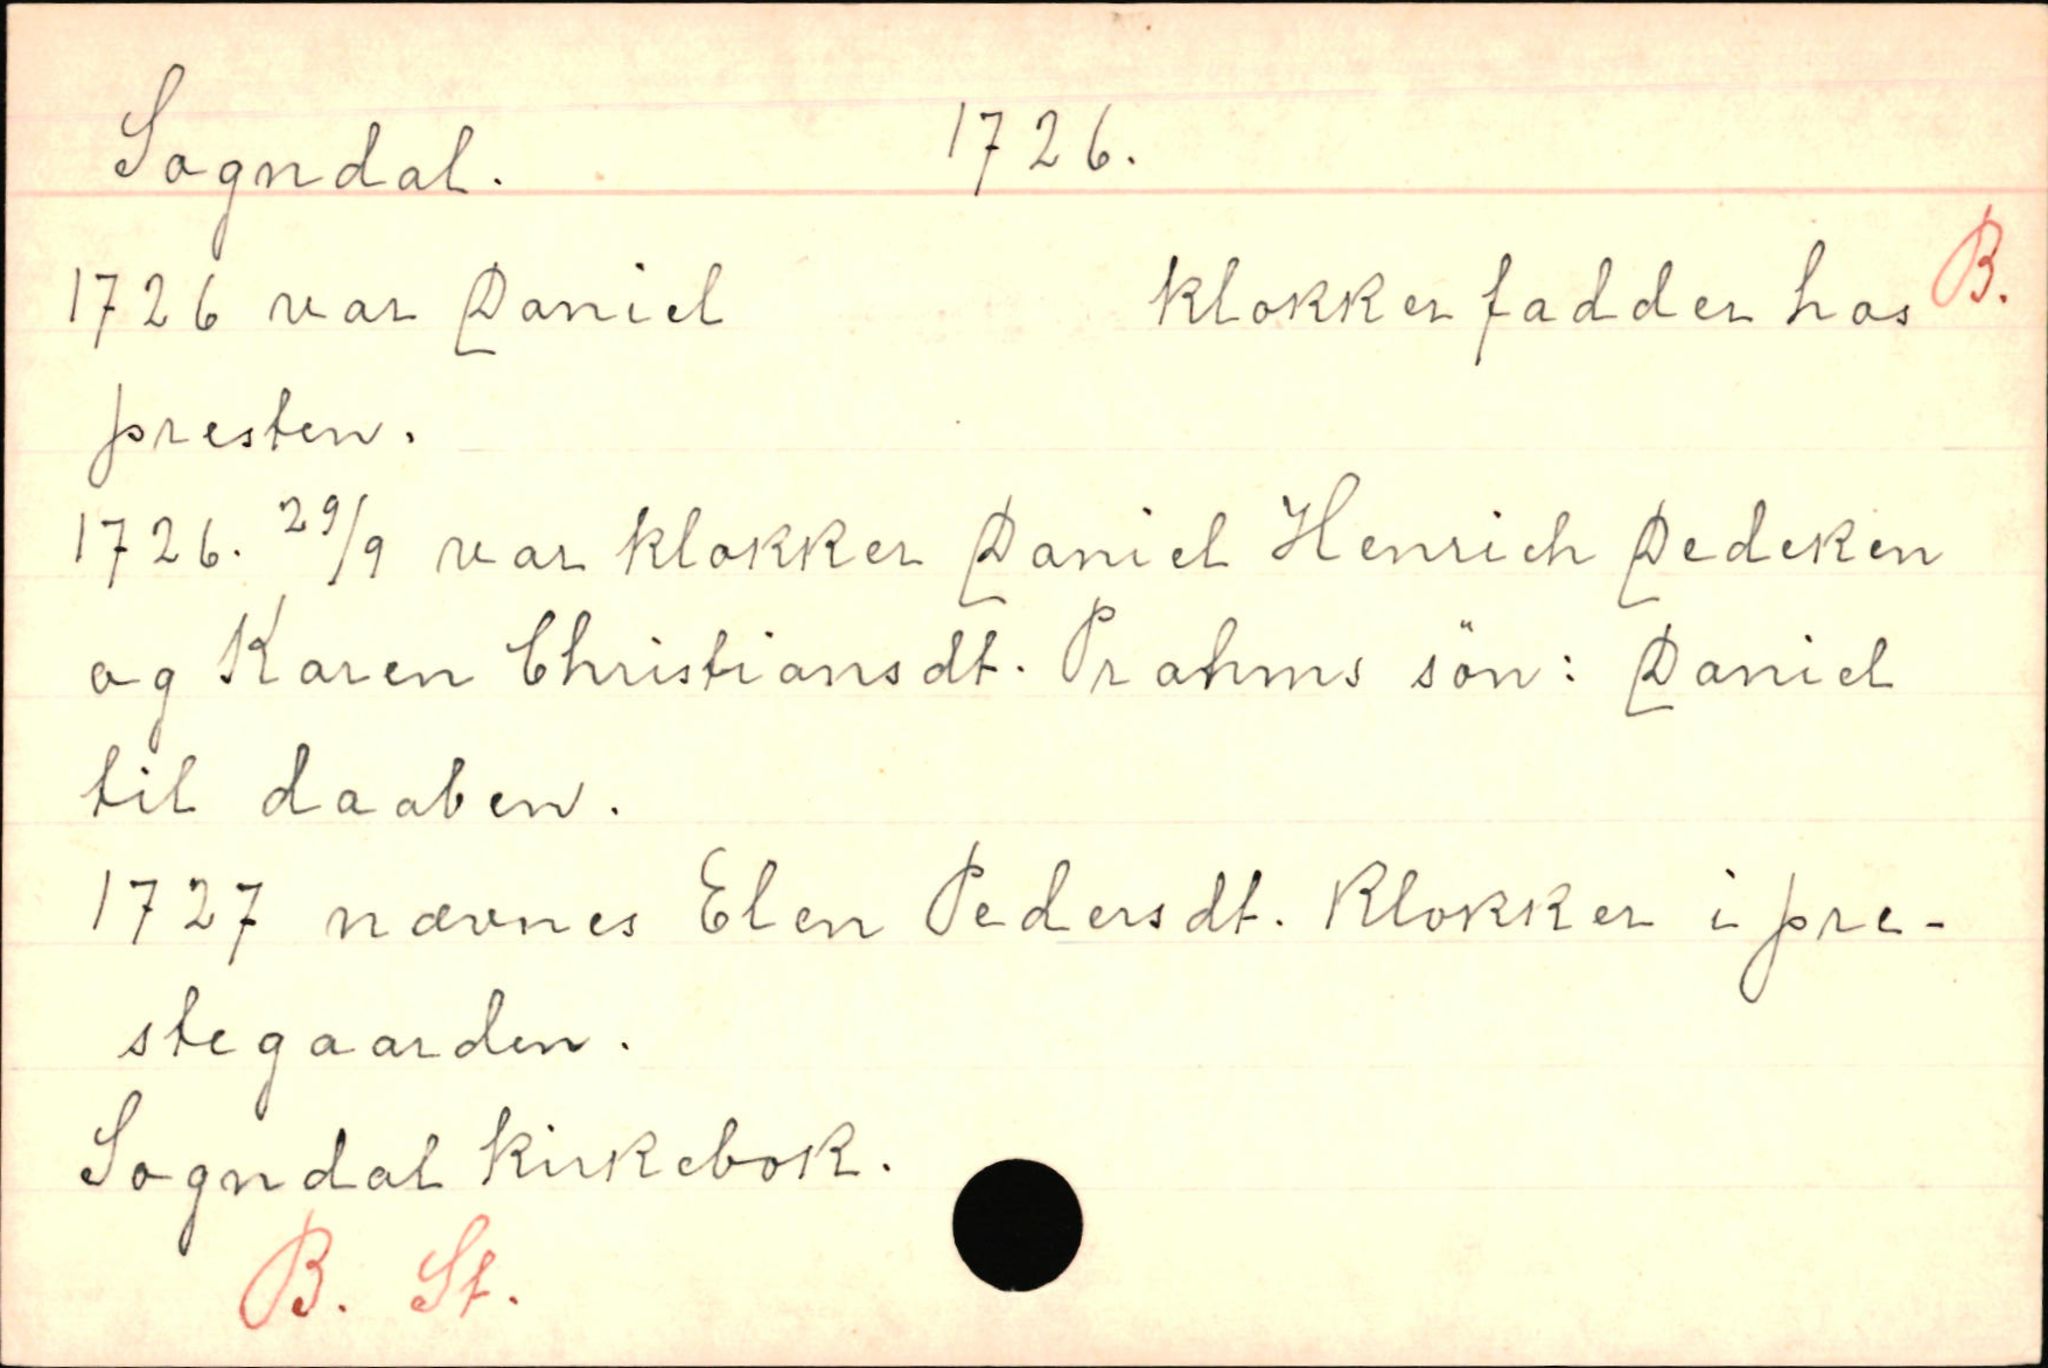 Sogndal. 1726.
1726 var Daniel klokker fadder hos B.
presten.
1726. 29/9 var klokker Daniel Henrich Dedeken
og Karen Christiansdt. Prahms sön: Daniel
til daaben.
1727 nævnes Elen Pedersdt. Klokker i pre-
stegaarden.
Sogndal kirkebok.
B. St.